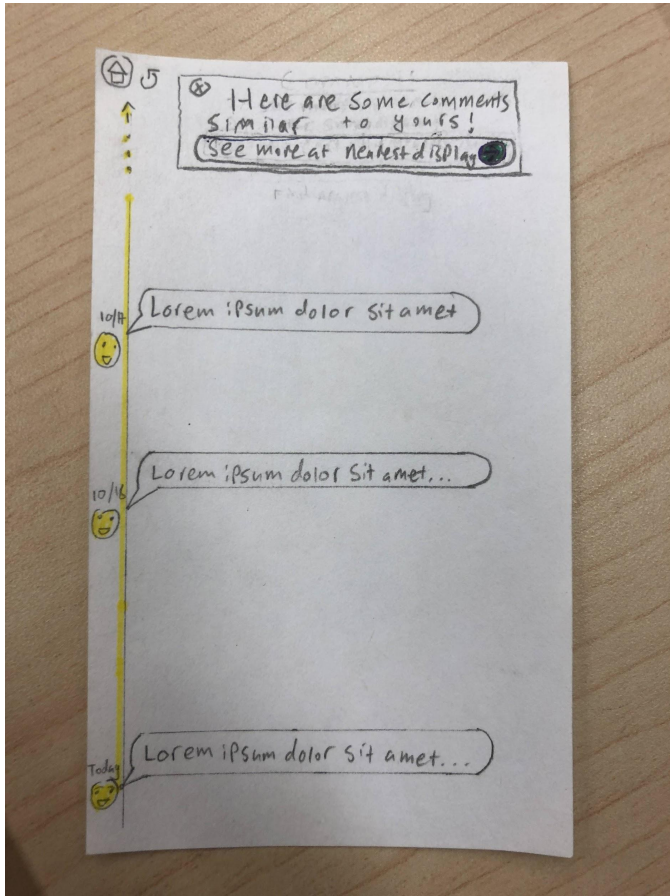 Here are some comments
similar to yours!
See more at nearest display
10/17
Lorem ipsum dolor sit amet
10/16
Lorem ipsum dolor sit amet...
Today
Lorem ipsum dolor sit amet...